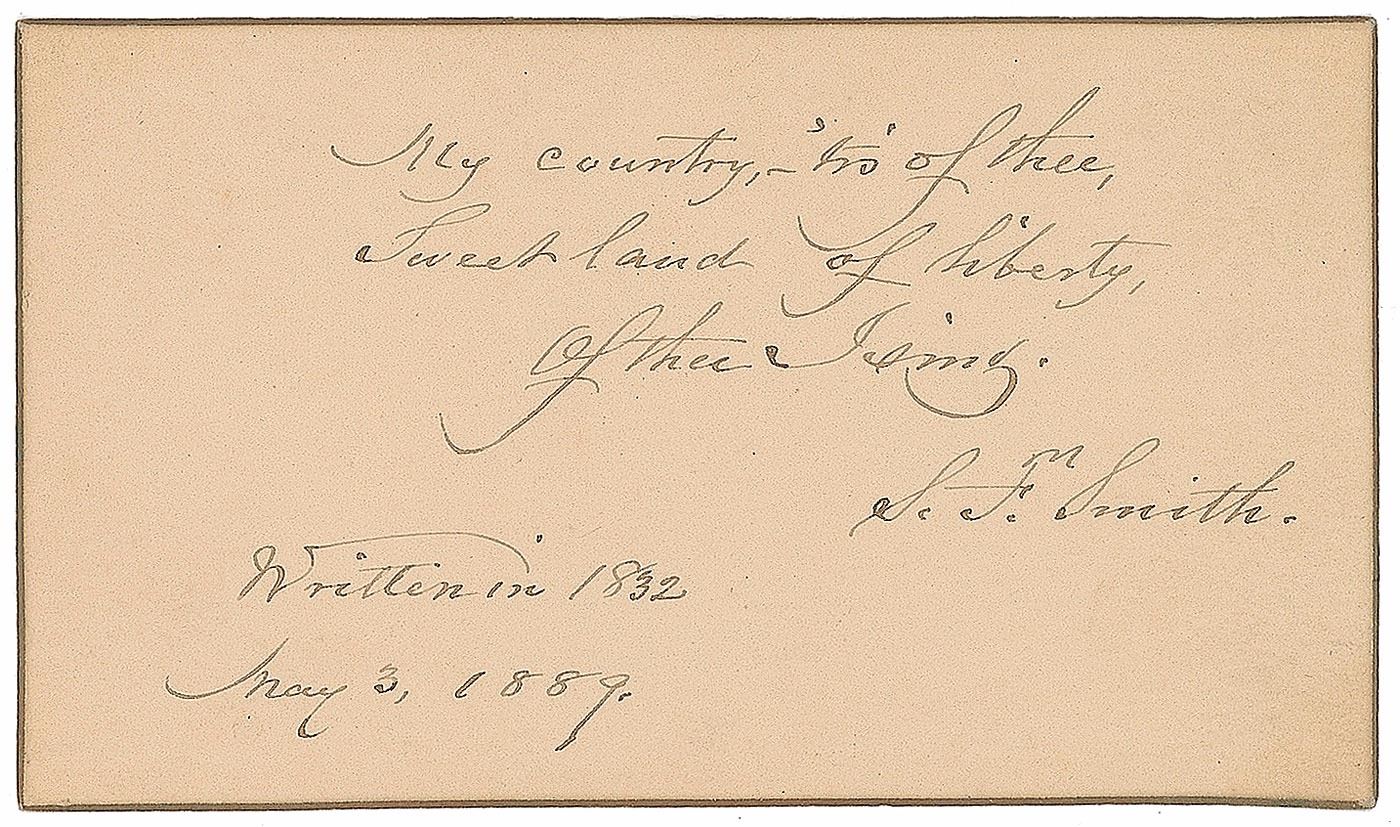 My country,– 'tis of thee,
Sweet land of liberty,
Of thee I sing.
S. F. Smith.
Written in 1832
May 3, 1889.